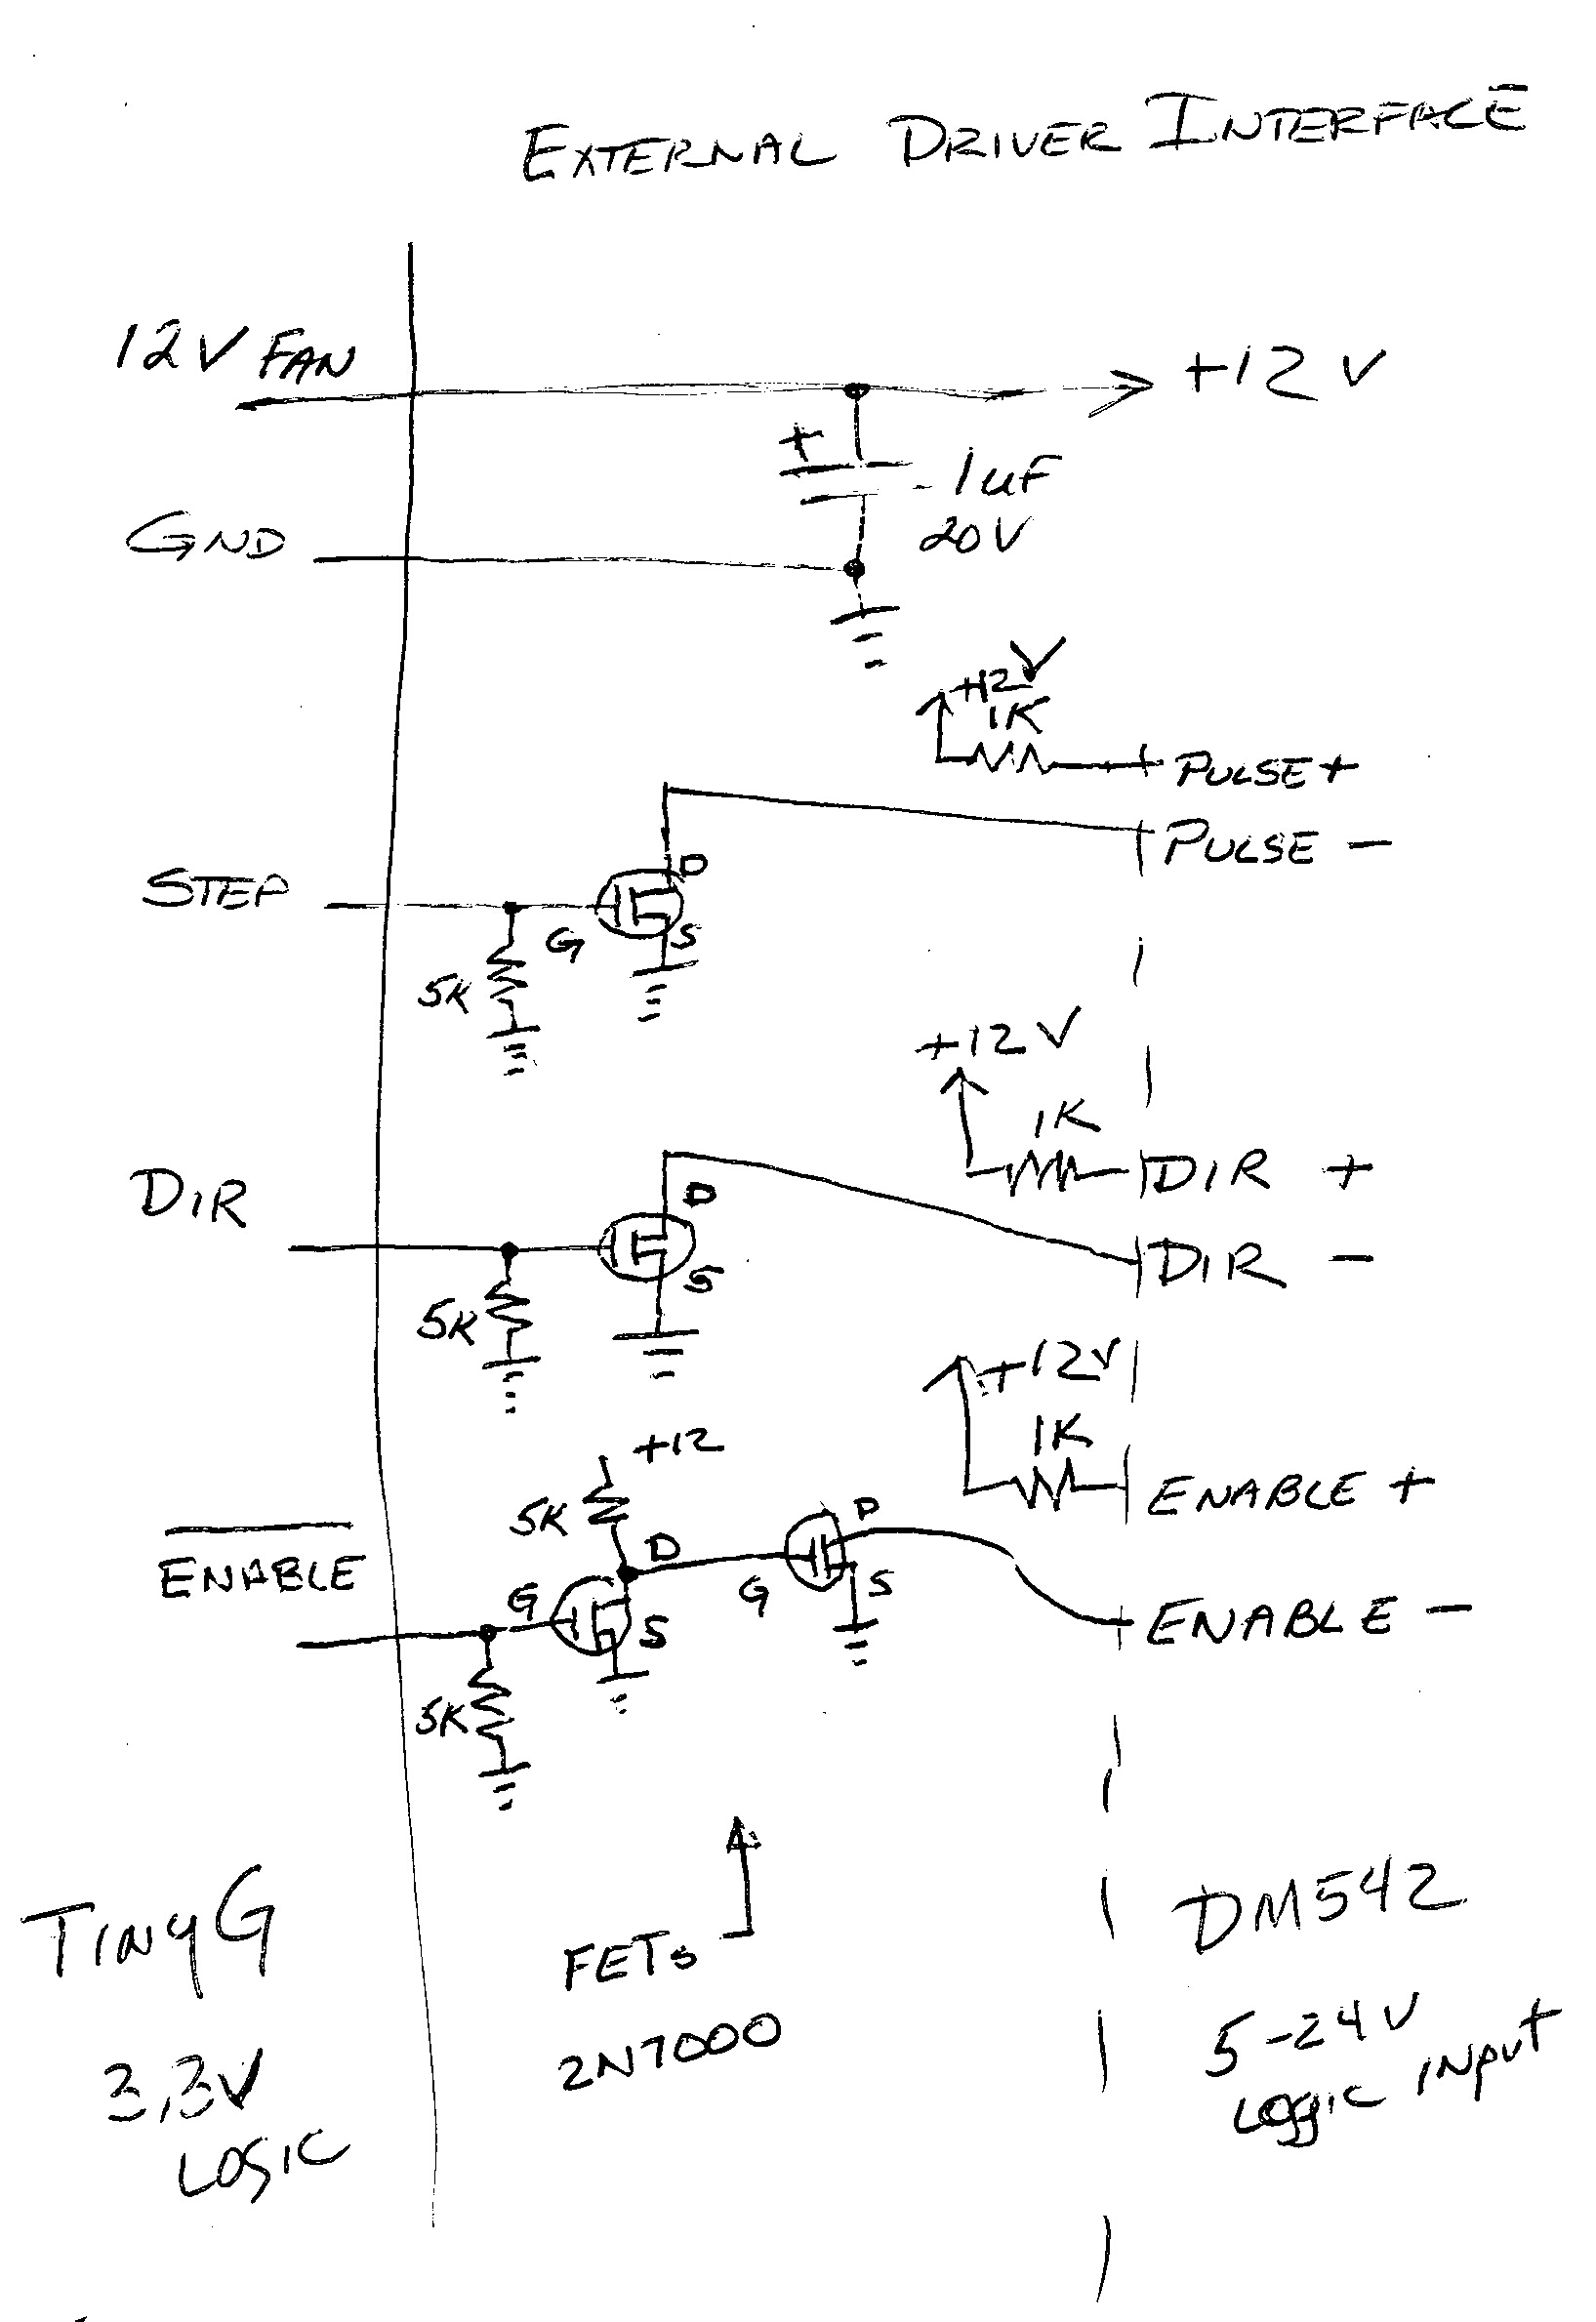 EXTERNAL DRIVER INTERFACE
12V FAN
+12 V
+
.1uF
20V
GND
+12V
1K
PULSE +
PULSE -
STEP
D
G
S
5K
+12V
1K
DIR +
DIR
D
S
DIR -
5K
+12V
1K
+12
ENABLE +
5K
D
D
ENABLE
G
S
G
S
ENABLE -
5K
TinyG
DM542
FETs
2N7000
3.3V
LOGIC
5-24V
LOGIC INPUT